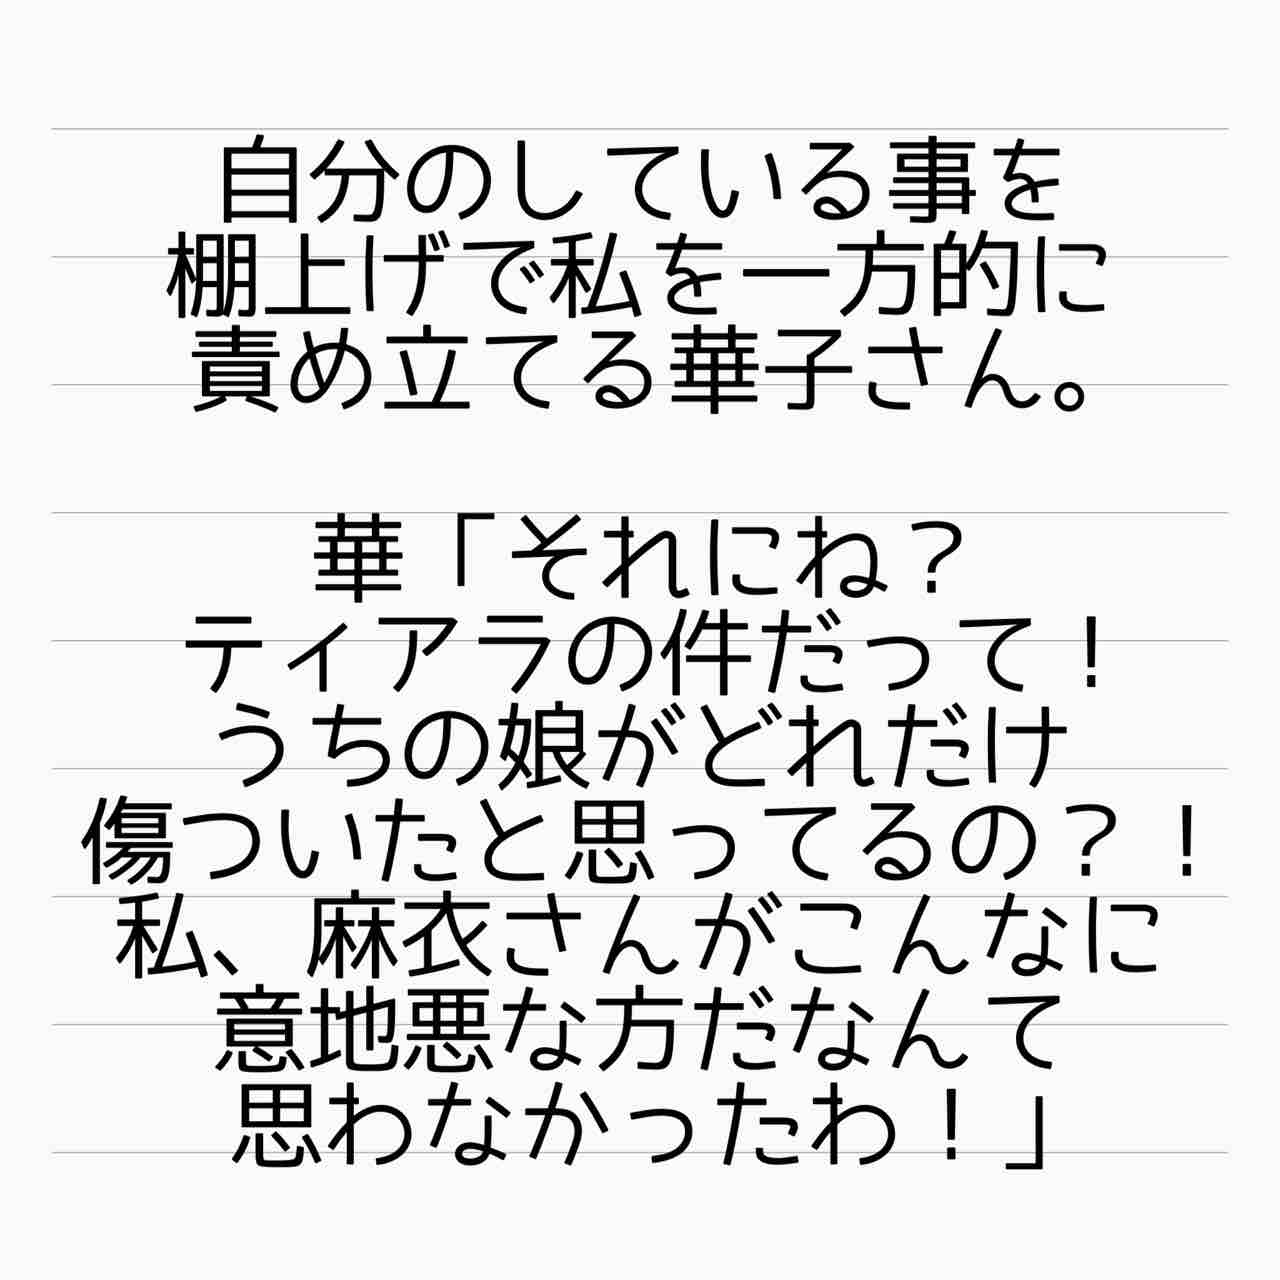 自分のしている事を
棚上げで私を一方的に
責め立てる華子さん。
華「それにね？
ティアラの件だって！
うちの娘がどれだけ
傷ついたと思ってるの？！
私、麻衣さんがこんなに
意地悪な方だなんて
思わなかったわ！」